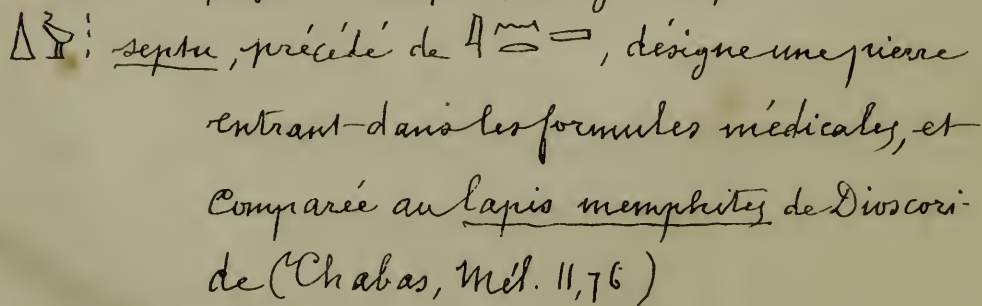 septu, précédé de , désigne une pierre
entrant dans les formules médicales, et
Comparée au lapis memphites de Dioscori-
de (Chabas, Mél. 11,76)